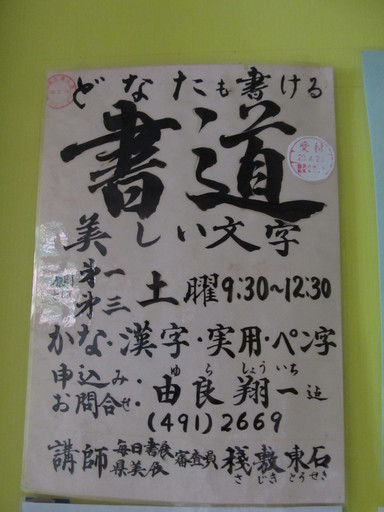 どなたも書ける
書道
美しい文字
第一
第三
土曜9:30~12:30
かな・漢字・実用・ペン字
申込み・
お問合せ・
由良翔一迠
ゆらしょういち
(491)2669
講師
毎日書展
県美展
審査員
棧敷東石
さじきとうせき
受付